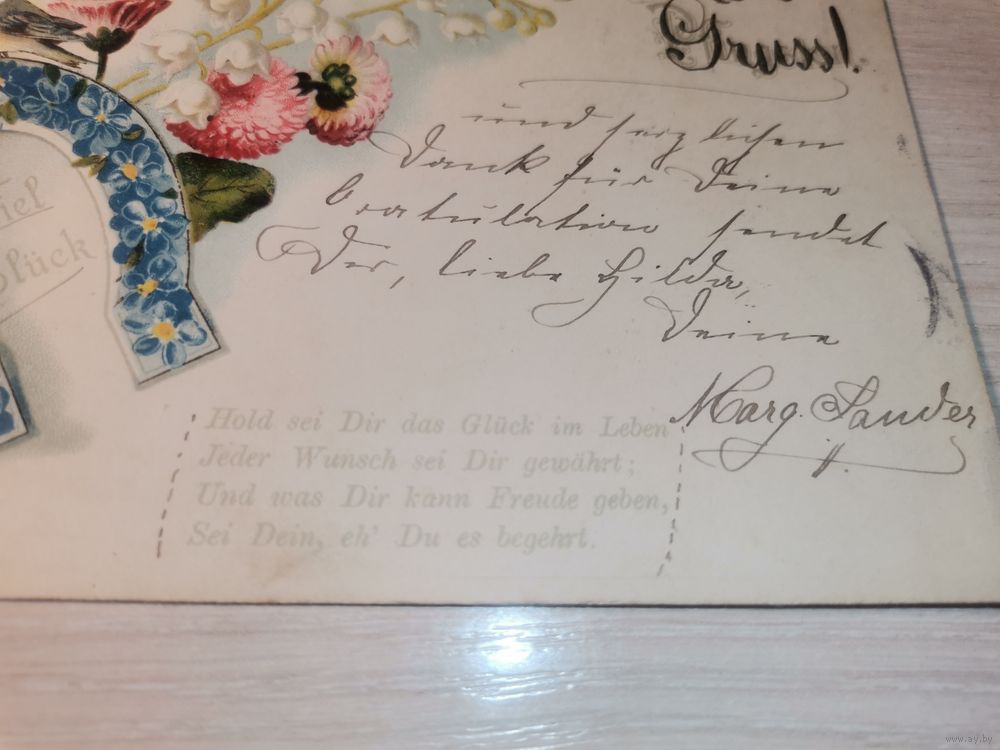 Gruss!
und herzlichen
Dank für Deine
Gratulation sendet
Dir, liebe Hilda,
Deine
Marg. Sander
Viel
Glück
Hold sei Dir das Glück im Leben
Jeder Wunsch sei Dir gewährt;
Und was Dir kann Freude geben,
Sei Dein, eh' Du es begehrt.
www.ay.by